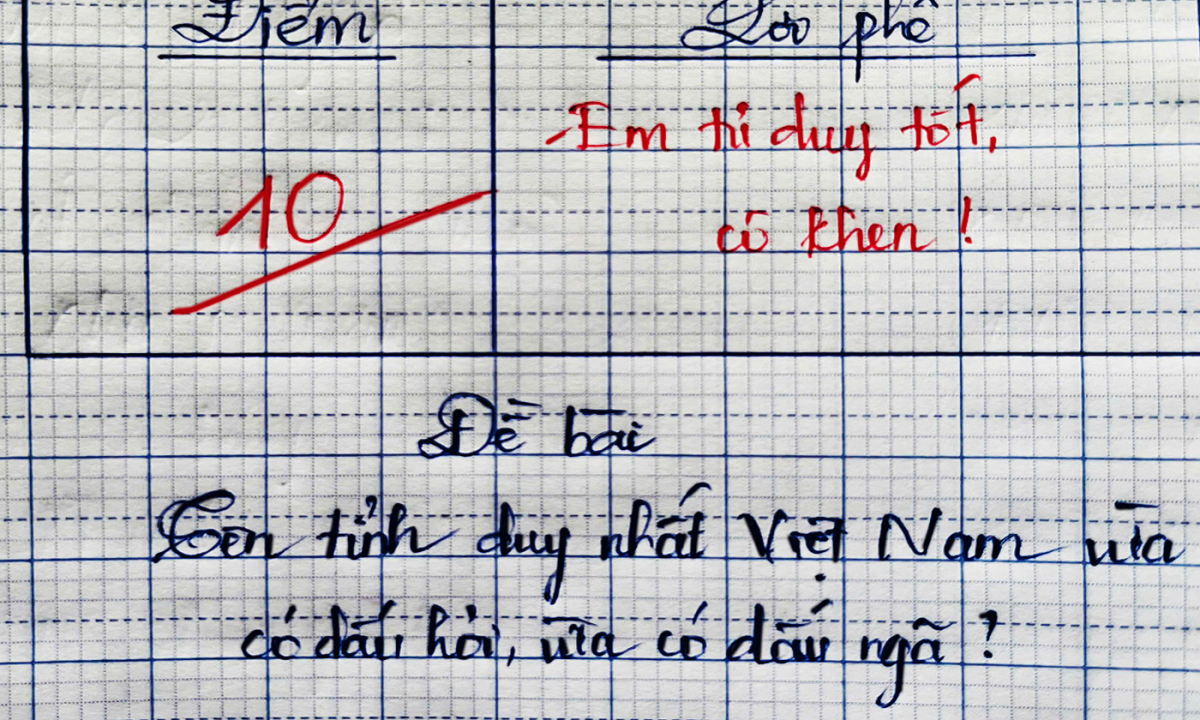 Điểm
Lời phê
Em tư duy tốt,
cô khen !
10
Đề bài
Tên tỉnh duy nhất Việt Nam vừa
có dấu hỏi, vừa có dấu ngã ?